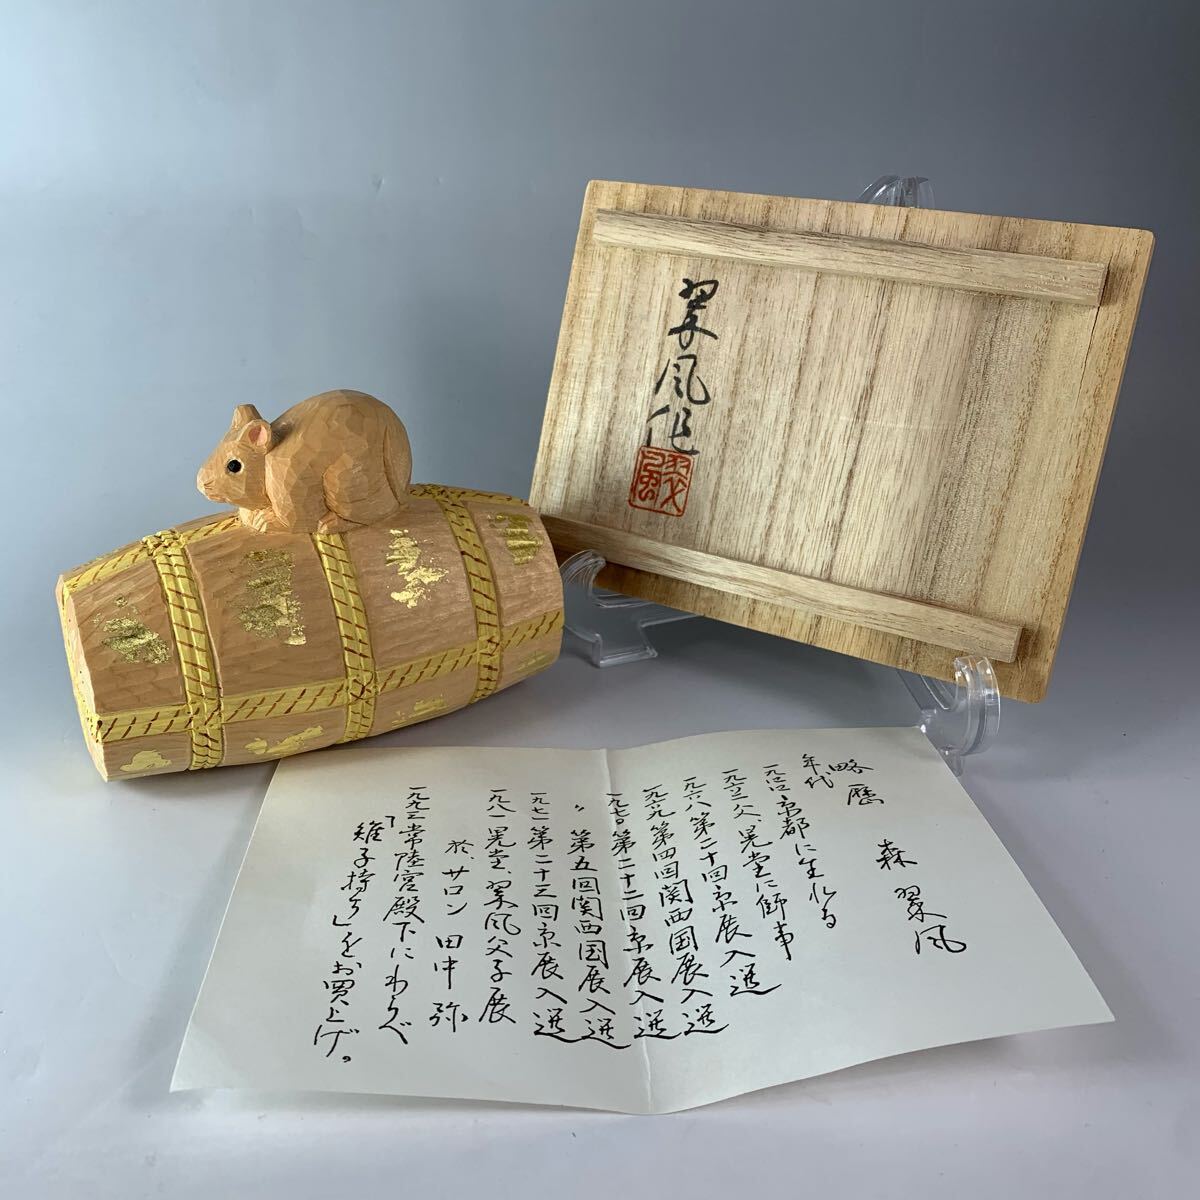 翠風作
翠風
略歴
森 翠風
年代
一九四四 京都に生れる
一九六二 父、晃堂に師事
一九六八 第二十回京展入選
一九六九 第四回関西国展入選
一九七〇 第二十二回京展入選
〃 第五回関西国展入選
一九七一 第二十三回京展入選
一九八一 晃堂、翠風父子展
於、サロン田中弥
一九九三 常陸宮殿下にわらべ
「雉子持ち」をお買上げ。